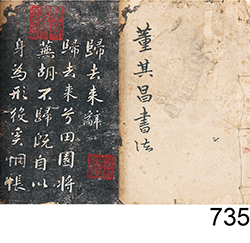 董其昌書法
歸去來辭
歸去来兮田園将
蕪胡不歸既自以
身為形役奚惆悵
735